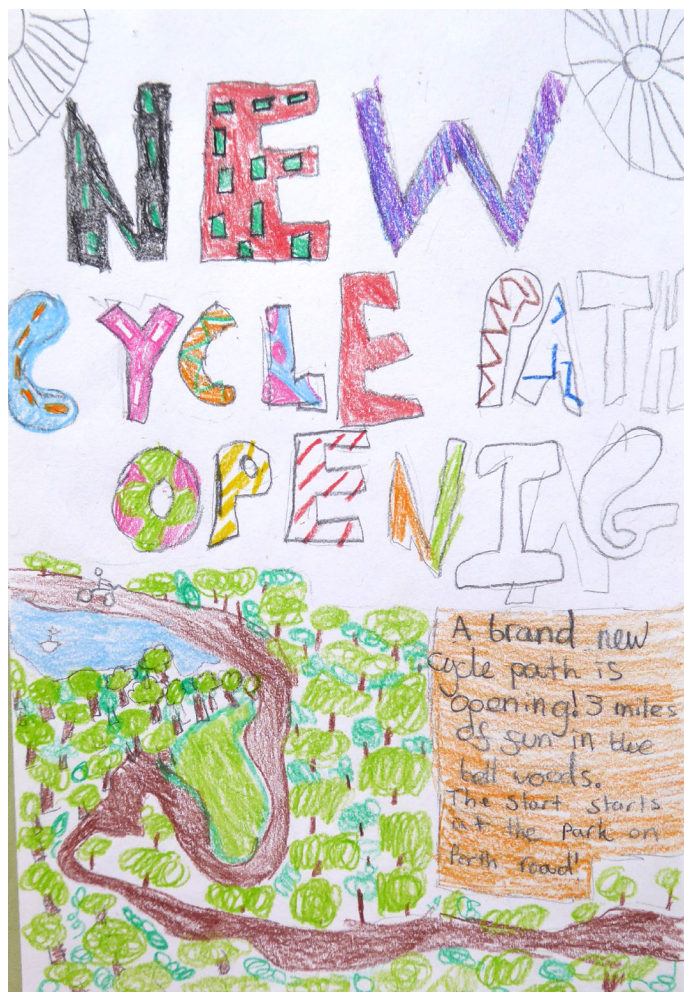 NEW
CYCLE PATH
OPENING
A brand new
Cycle path is
opening! 3 miles
of fun in the
bell woods.
The start starts
at the park on
Perth road!